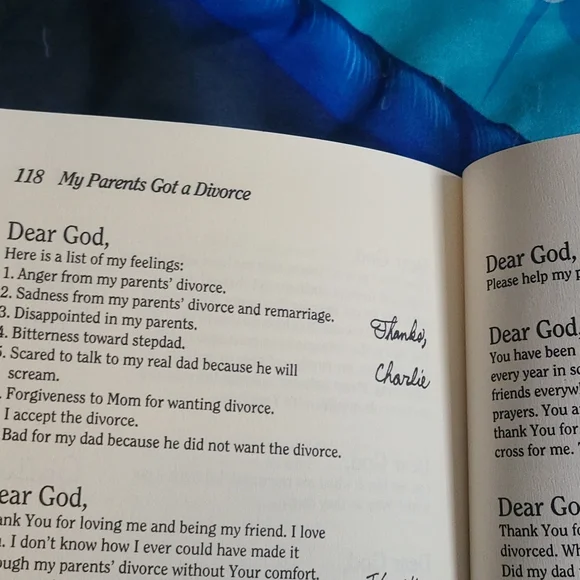 118 My Parents Got a Divorce
Dear God,
Here is a list of my feelings:
1. Anger from my parents' divorce.
2. Sadness from my parents' divorce and remarriage.
3. Disappointed in my parents.
4. Bitterness toward stepdad.
5. Scared to talk to my real dad because he will
scream.
. Forgiveness to Mom for wanting divorce.
I accept the divorce.
Bad for my dad because he did not want the divorce.
Thanks,
Charlie
ear God,
ank You for loving me and being my friend. I love
. I don't know how I ever could have made it
ough my parents' divorce without Your comfort.
Dear God,
Please help my p
Dear God,
You have been
every year in sc
friends everyw
prayers. You a
thank You for
cross for me.
Dear Go
Thank You fo
divorced. Wh
Did my dad